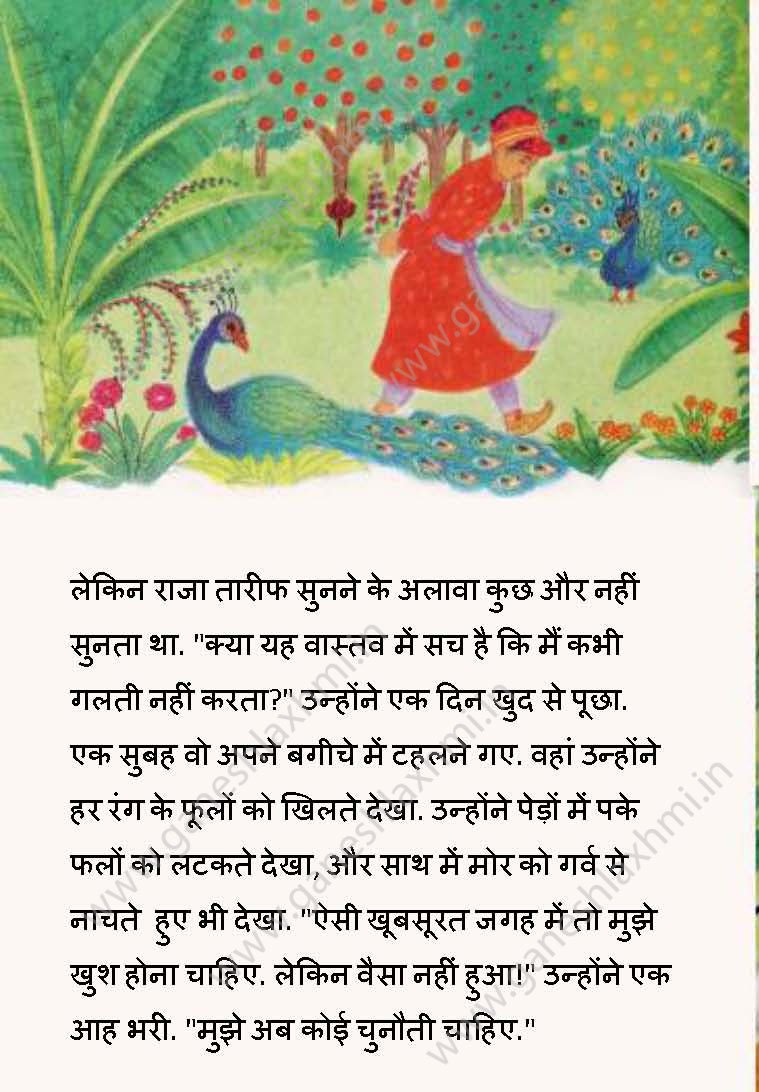 लेकिन राजा तारीफ सुनने के अलावा कुछ और नहीं
सुनता था. "क्या यह वास्तव में सच है कि मैं कभी
गलती नहीं करता?" उन्होंने एक दिन खुद से पूछा.
एक सुबह वो अपने बगीचे में टहलने गए. वहां उन्होंने
हर रंग के फूलों को खिलते देखा. उन्होंने पेड़ों में पके
फलों को लटकते देखा, और साथ में मोर को गर्व से
नाचते हुए भी देखा. "ऐसी खूबसूरत जगह में तो मुझे
खुश होना चाहिए. लेकिन वैसा नहीं हुआ!" उन्होंने एक
आह भरी. "मुझे अब कोई चुनौती चाहिए."
www.ganeshlaxhmi.in
www.ganeshlaxhmi.in
www.ganeshlaxhmi.in
www.ganeshlaxhmi.in